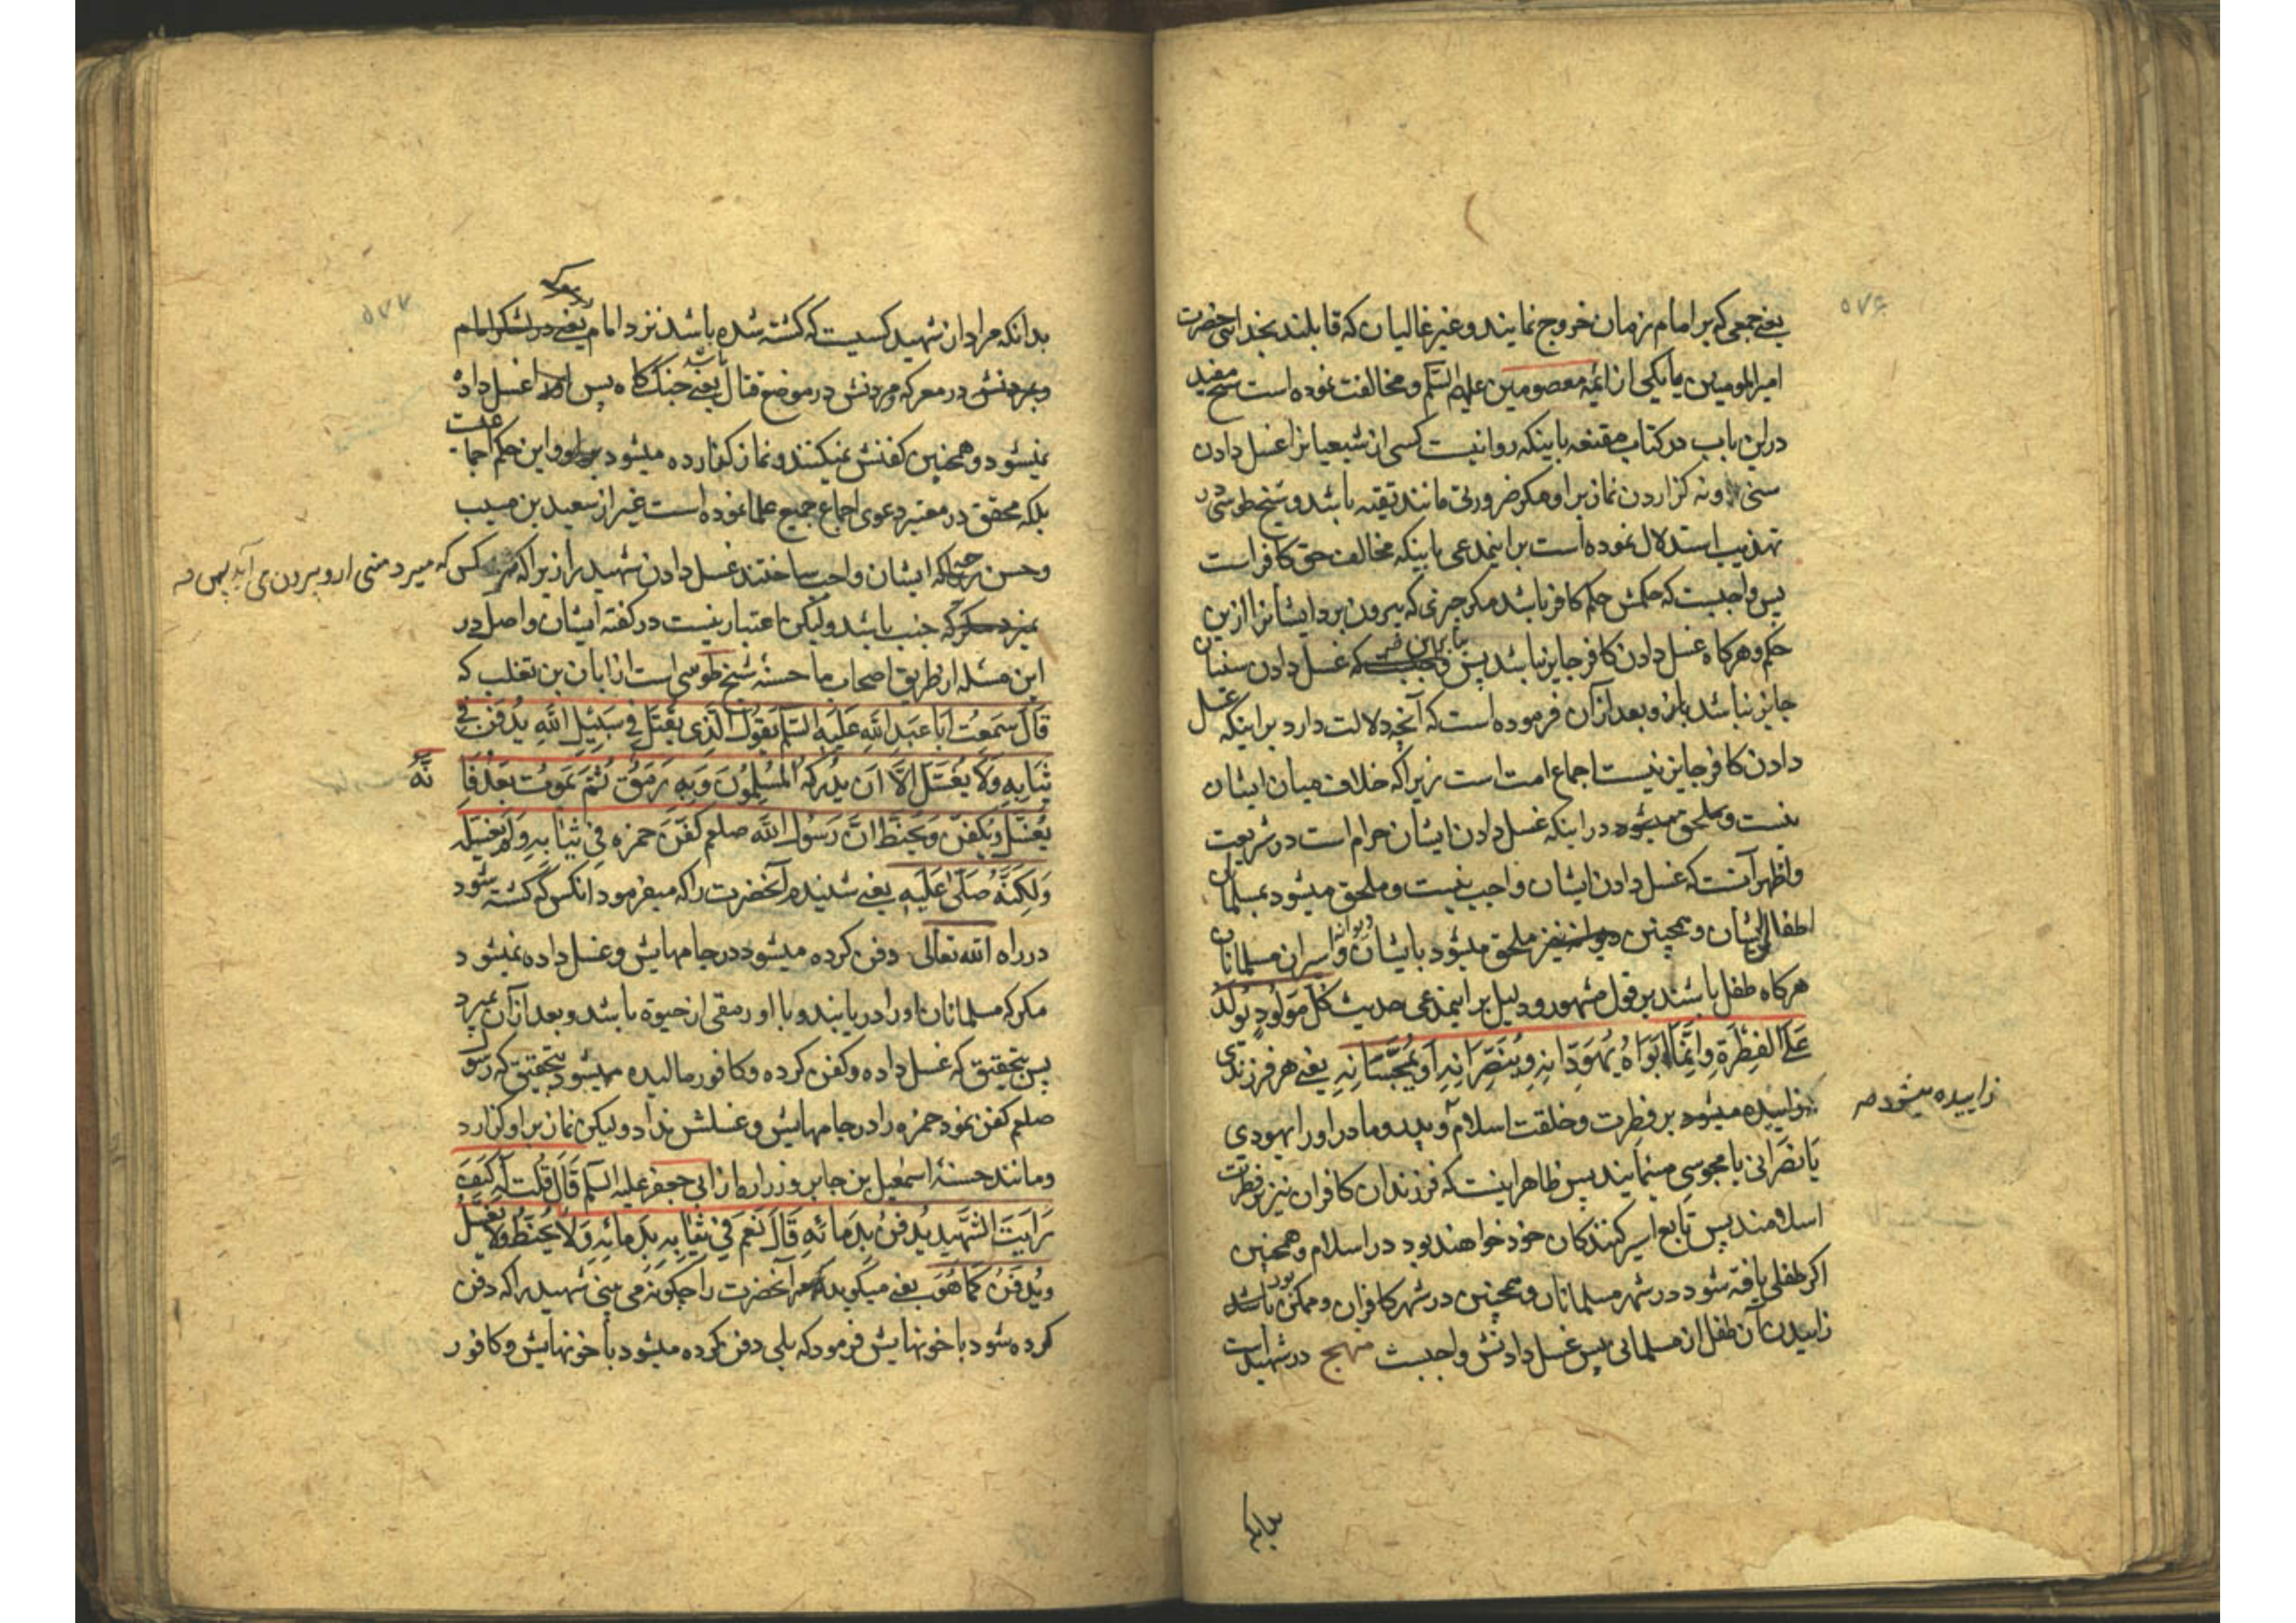 ۵۷۶
یعنے جمعی که بر امام زمان خروج نمایند و غیر غالیان که قایلند بخدایی حضرت
امیرالمومنین یا یکی از ائمه معصومین علیهم السّلم و مخالفت نموده است شیخ مفید
در این باب در کتاب مقنعه باینکه روا نیست کسی از شیعیانرا غسل دادن
سنی و نه کزاردن نماز بر او مکر ضرورتی مانند تقیّه باشد و شیخ طوسی در
تهذیب استدلال نموده است بر اینمدعی باینکه مخالف حق کافر است
پس واجبست که حکمش حکم کافر باشد مکر چیزی که بیرون برد ایشانرا ازین
حکم و هرکاه غسل دادن کافر جایز نباشد پس بنابراین که غسل دادن سنیان
جایز نباشد و بعد از آن فرموده است که آنچه دلالت دارد بر اینکه غسل
دادن کافر جایز نیست اجماع امت است زیرا که خلاف میان ایشان
نیست در اینکه غسل دادن ایشان حرام است در شریعت
و اظهر آنست که غسل دادن ایشان واجب نیست و ملحق میشود بمسلمانان
اطفال ایشان و همچنین ملحق میشود بایشان دیوانه و اسیران مسلمانان
هرکاه طفل باشند بر قول مشهور و دلیل بر اینمدعی حدیث کُلّ مَولُودٍ یُولَدُ
عَلَی الفِطرَةِ وَاِنَّمَا اَبَوَاهُ یُهَوِّدَانِهِ وَیُنَصِّرَانِهِ اَو یُمَجِّسَانِهِ یعنے هر فرزندی
زاییده میشود بر فطرت و خلقت اسلام و پدر و مادر او را یهودی
زاییده میشود صح
یا نصرانی یا مجوسی مینمایند پس ظاهر اینست که فرزندان کافران نیز بر فطرت
اسلامند پس تابع اسیر کنندکان خود خواهند بود در اسلام و همچنین
اکر طفلی یافته شود در شهر مسلمانان و همچنین در شهر کافران و ممکن بود
زاییدن آن طفل از مسلمانی پس غسل دادنش واجبست منهج در شهید است
بدانکه
۵۷۷
بدانکه مراد از شهید کسیست که کشته شده باشد نزد امام یعنے در لشکر امام
و مردنش در معرکه در موضع قتال باشد یعنے جنک کاه پس او را غسل داده
نمیشود و همچنین کفنش نمیکنند و نماز کزارده میشود بر او و این حکم اجماعیست
بلکه محقق در معتبر دعوی اجماع جمیع علما نموده است غیر از سعید بن مسیب
و حسن چه که ایشان واجب ساختند غسل دادن شهید را زیرا که هر کس که میرد منی از او بیرون می آید پس
نمیرد مکر که جنب باشد ولیکن اعتبار نیست در کفته ایشان و اصل در
این مسئله از طریق اصحاب ما حسنهٔ شیخ طوسی است از ابان بن تغلب که
قَالَ سَمِعتُ اَبَا عَبدِ اللّهِ عَلَیهِ السّلم یَقُولُ الَّذِی یُقتَلُ فِی سَبِیلِ اللّهِ یُدفَنُ فِی
ثِیَابِهِ وَلَا یُغَسَّلُ اِلَّا اَن یُدرِکَهُ المُسلِمُونَ وَبِهِ رَمَقٌ ثُمَّ یَمُوتُ بَعدُ فَاِنَّهُ
یُغَسَّلُ وَیُکَفَّنُ وَیُحَنَّطُ اِنَّ رَسُولَ اللّهِ صلعم کَفَّنَ حَمزَه فِی ثِیَابِهِ وَلَم یُغَسِّلهُ
وَلَکِنَّهُ صَلَّی عَلَیهِ یعنے شنیدم آنحضرت را که میفرمود انکس که کشته شود
در راه الله تعالی دفن کرده میشود در جامهایش و غسل داده نمیشود
مکر که مسلمانان او را دریابند و با او رمقی از حیوة باشد و بعد از آن بمیرد
پس بتحقیق که غسل داده و کفن کرده و کافور مالیده میشود بتحقیق که رسول
صلعم کفن نمود حمزه را در جامهایش و غسلش نداد ولیکن نماز بر او کزارد
و مانند حسنهٔ اسمعیل بن جابر و زراره از ابی جعفر علیه السّلم قَالَ قُلتُ لَه کَیفَ
رَاَیتَ الشَّهِیدَ یُدفَنُ بِدِمَائِهِ قَالَ نَعَم فِی ثِیَابِهِ بِدِمَائِهِ وَلَا یُحَنَّطُ وَلَا یُغَسَّلُ
وَیُدفَنُ کَمَا هُوَ یعنے میکوید آنحضرت را چکونه می بینی شهید را که دفن
کرده شود با خونهایش فرمود که بلی دفن کرده میشود با خونهایش و کافور